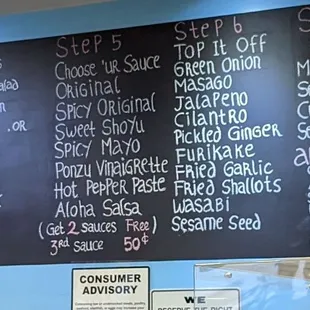 Step 5
Choose 'UR Sauce
Original
Spicy Original
Sweet Shoyu
Spicy Mayo
Ponzu Vinaigrette
Hot Pepper Paste
Aloha Salsa
(Get 2 sauces Free)
3rd Sauce 50¢
Step 6
Top It Off
Green Onion
Masago
Jalapeno
Cilantro
Pickled Ginger
Furikake
Fried Garlic
Fried Shallots
Wasabi
Sesame Seed
.or
CONSUMER
ADVISORY
WE
RESERVE THE RIGHT